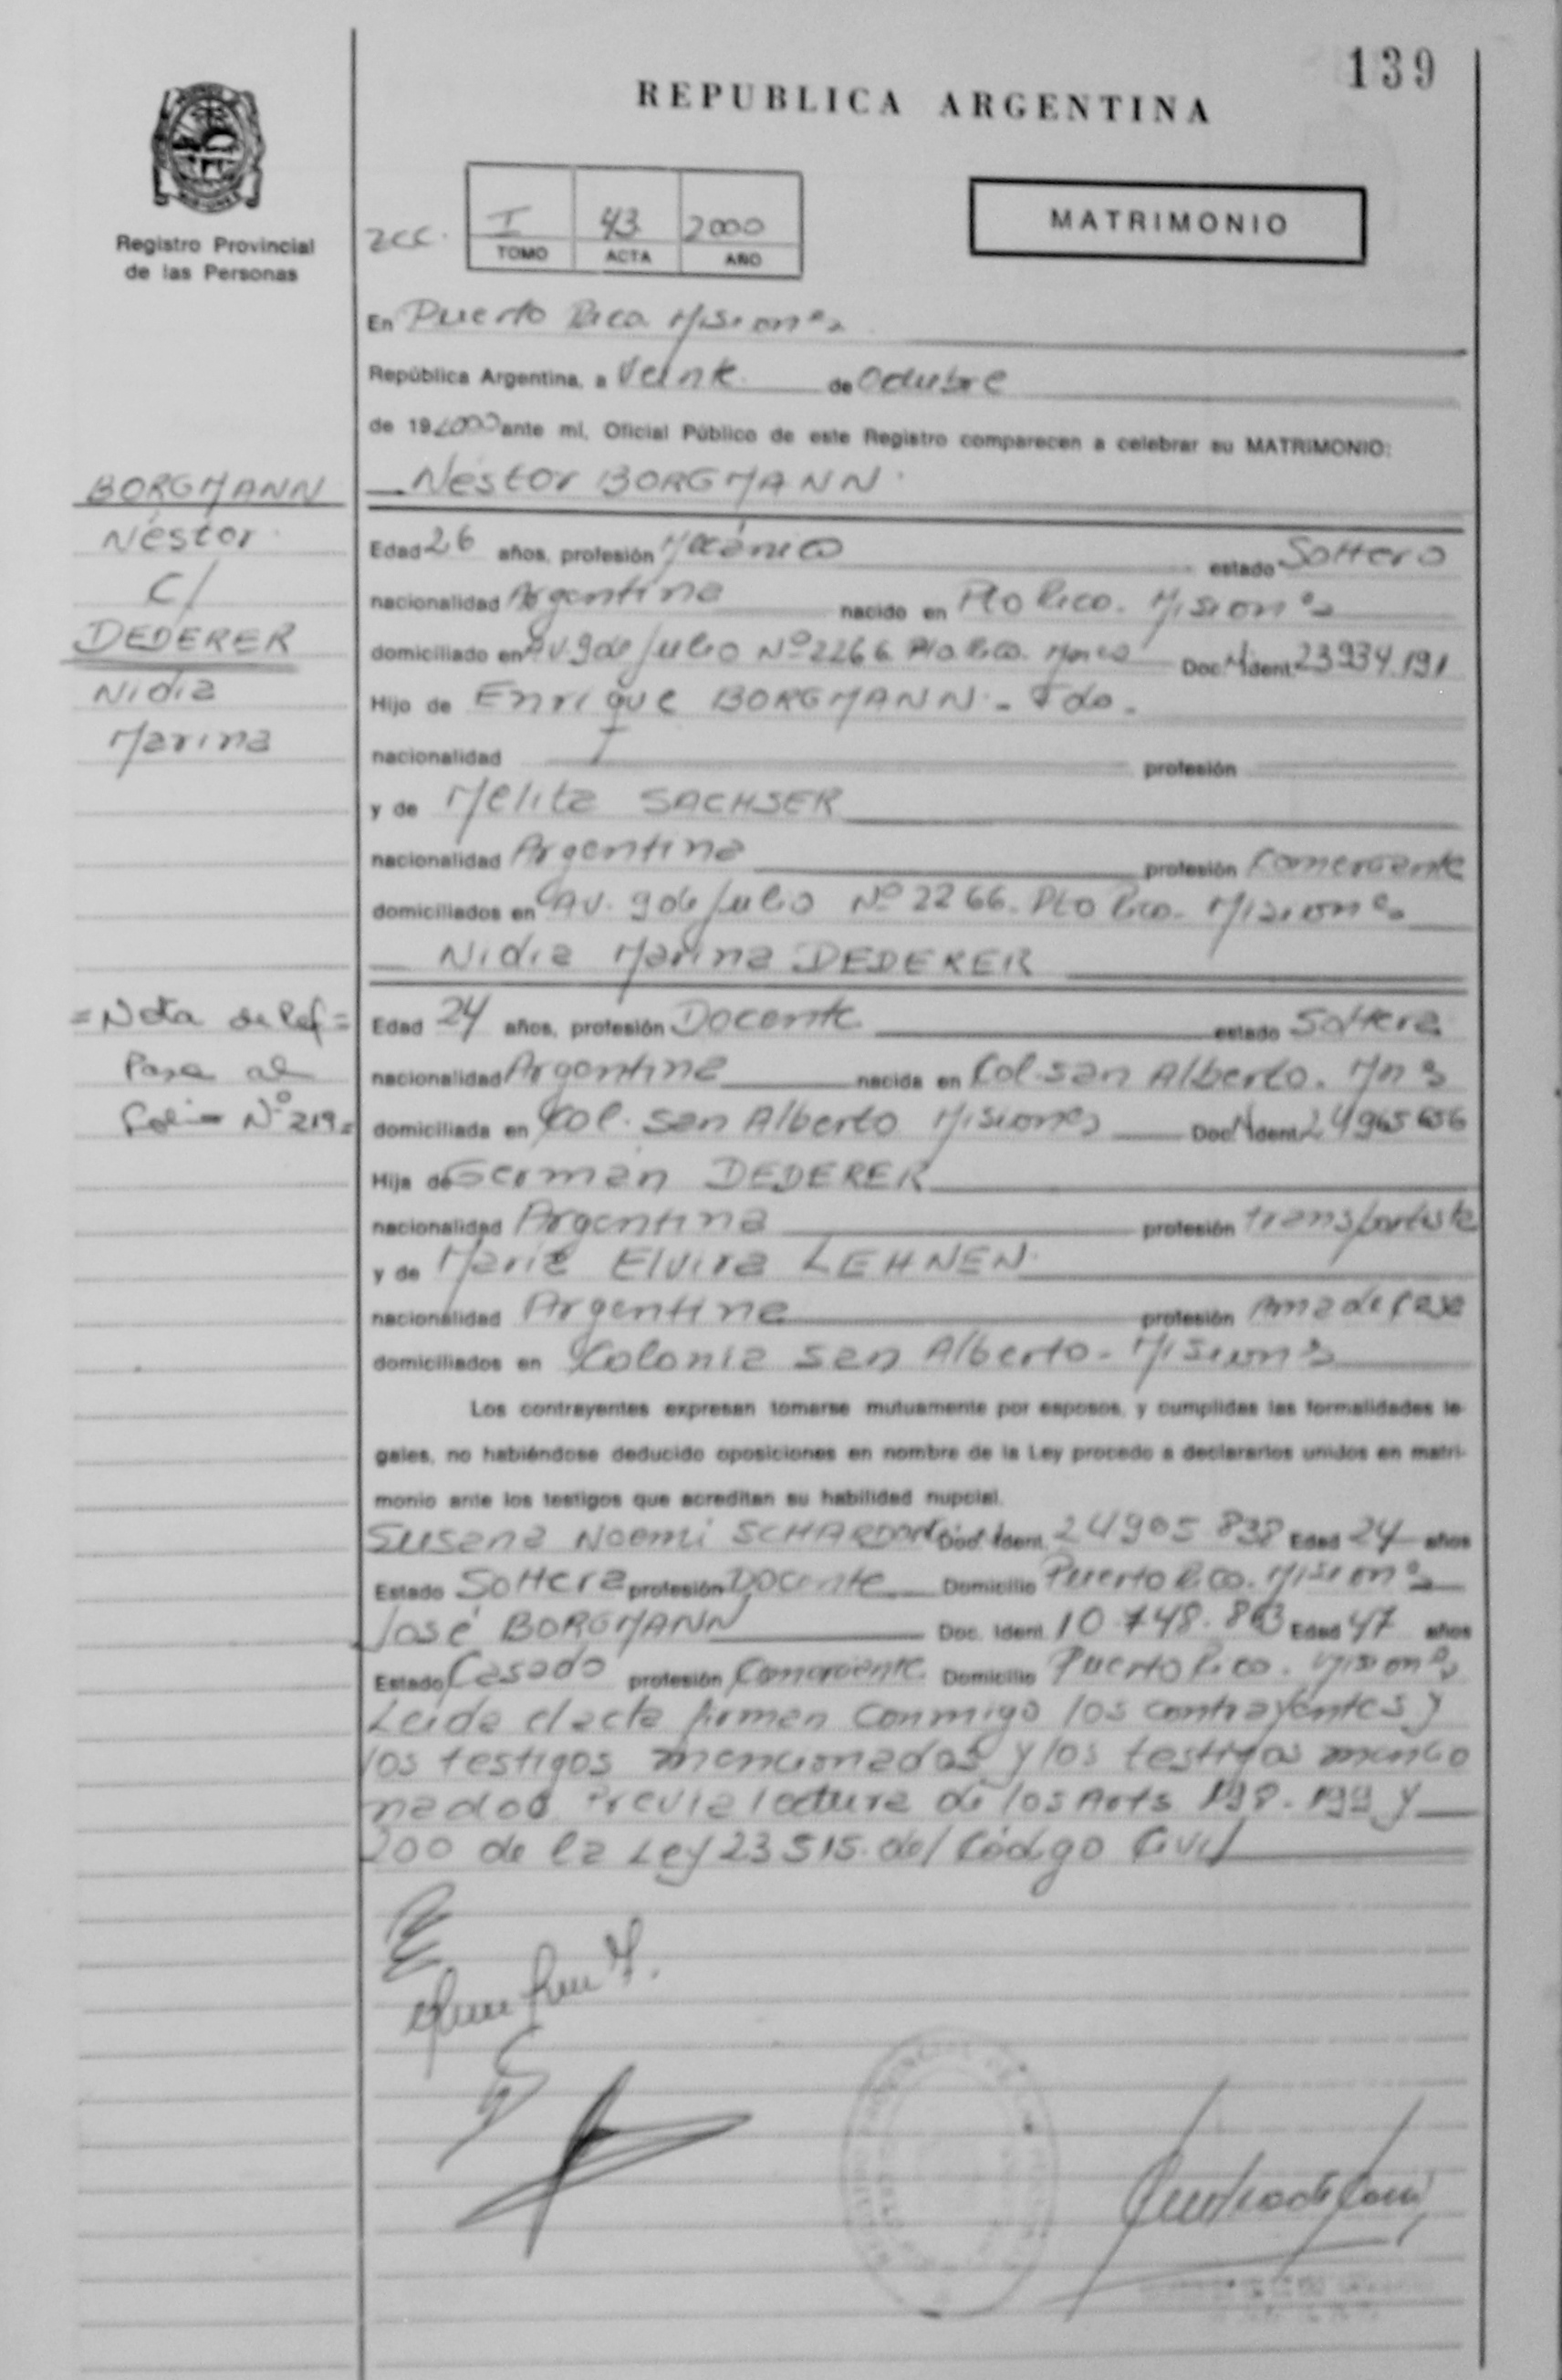 139
REPUBLICA ARGENTINA
Registro Provincial
de las Personas
I 43 2000
TOMO ACTA AÑO
MATRIMONIO
En Puerto Rico Misiones
República Argentina, a Veinte de Octubre
de 19 2000 ante mí, Oficial Público de este Registro comparecen a celebrar su MATRIMONIO:
Néstor BORGMANN
BORGMANN
Néstor
C/
DEDERER
Nidia
Marina
Edad 26 años, profesión Mecánico estado Soltero
nacionalidad Argentina nacido en Pto Rico. Misiones
domiciliado en Av. 9 de Julio Nº 2266 Pto Rico. Mnes Doc. Ident. 23934.191
Hijo de Enrique BORGMANN - Fdo.
nacionalidad profesión
y de Melita SACHSER
nacionalidad Argentina profesión Comerciante
domiciliados en Av. 9 de Julio Nº 2266. Pto Rico. Misiones
Nidia Marina DEDERER
= Nota de Ref =
Pasa al
Folio Nº 219 =
Edad 24 años, profesión Docente estado Soltera
nacionalidad Argentina nacida en Col. San Alberto. Mns
domiciliada en Col. San Alberto Misiones Doc. Ident. 24965656
Hija de Germán DEDERER
nacionalidad Argentina profesión transportista
y de María Elvira LEHNEN
nacionalidad Argentina profesión Ama de casa
domiciliados en Colonia San Alberto - Misiones
Los contrayentes expresan tomarse mutuamente por esposos, y cumplidas las formalidades le-
gales, no habiéndose deducido oposiciones en nombre de la Ley procedo a declararlos unidos en matri-
monio ante los testigos que acreditan su habilidad nupcial.
Susana Noemi Doc. Ident. 24905838 Edad 24 años
Estado Soltera profesión Docente Domicilio Puerto Rico. Misiones
José BORGMANN Doc. Ident. 10.748.863 Edad 47 años
Estado Casado profesión Comerciante Domicilio Puerto Rico. Misiones
Leida el acta firman conmigo los contrayentes y
los testigos mencionados y los testigos mencio
nados Previa lectura de los Arts 198. 199 y
200 de la Ley 23515. del Código Civil